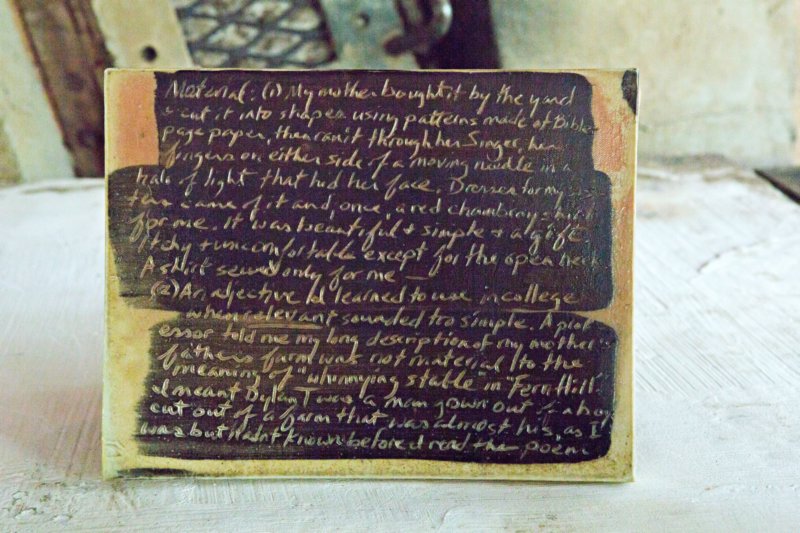 Material: (1) My mother bought it by the yard
+ cut it into shapes using patterns made of Bible-
page paper, then ran it through her Singer, her
fingers on either side of a moving needle in a
halo of light that hid her face. Dresses for my
came of it and, once, a red chambray shirt
for me. It was beautiful + simple + a gift.
Itchy + uncomfortable except for the open neck.
A shirt sewed only for me —
(2) An adjective I'd learned to use in college
when relevant sounded too simple. A prof-
essor told me my long description of my mother's
father's farm was not material to the
meaning of "whinnying stable" in "Fern Hill."
I meant Dylan T was a man grown out of a boy
cut out of a farm that was almost his, as I
was but hadn't known before I read the poem